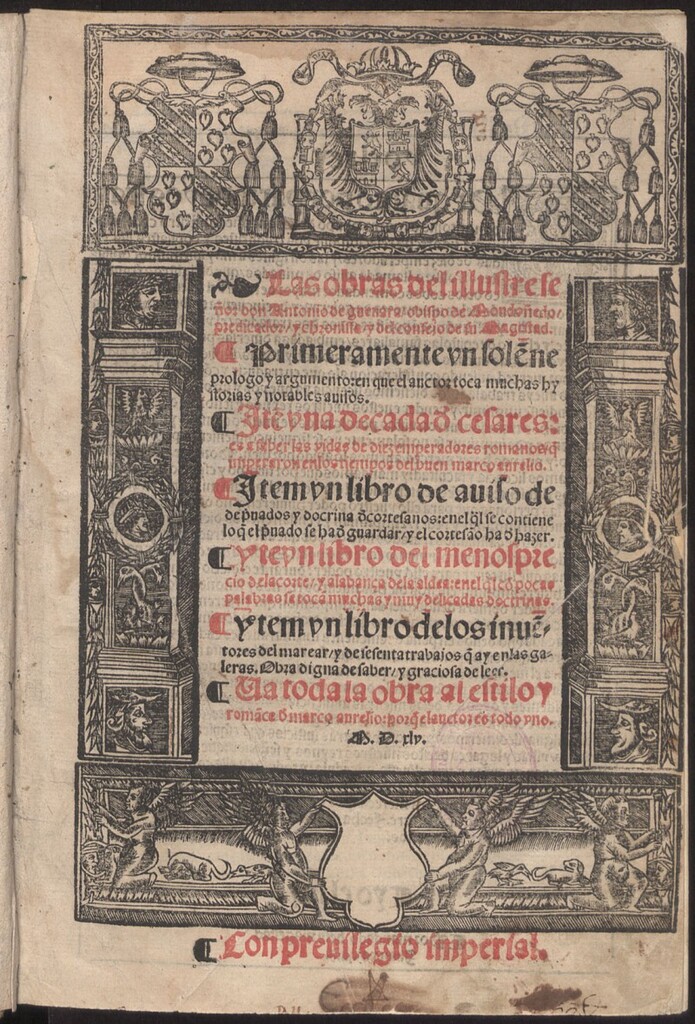 Las obras del illustre se
ñor don Antonio de gueuara / obispo de Mondoñedo /
predicador / y chronista / y del consejo de su Magestad.
¶ Primeramente vn solẽne
prologo y argumento: en que el auctor toca muchas hy
storias y notables auisos.
¶ Itẽ vna decada d̃ cesares:
es a saber las vidas de diez emperadores romanos q̃
imperaron enlos tiempos del buen marco aurelio.
¶ Item vn libro de auiso de
de p̃uados y doctrina d̃ cortesanos: enel q̃l se contiene
lo q̃ el p̃uado se ha d̃ guardar / y el cortesão ha d̃ hazer.
¶ Y tẽ vn libro del menospre
cio dela corte / y alabança dela aldea: enel q̃l cõ pocas
palabras se tocã muchas y muy delicadas doctrinas.
¶ Y tem vn libro delos inuẽ-
tores del marear / y de sesenta trabajos q̃ ay en las ga-
leras. Obra digna de saber / y graciosa de leer.
¶ Va toda la obra al estilo y
romãce d̃ marco aurelio: porq̃ el auctor es todo vno.
M. D. xlv.
¶ Con preuilegio imperial.